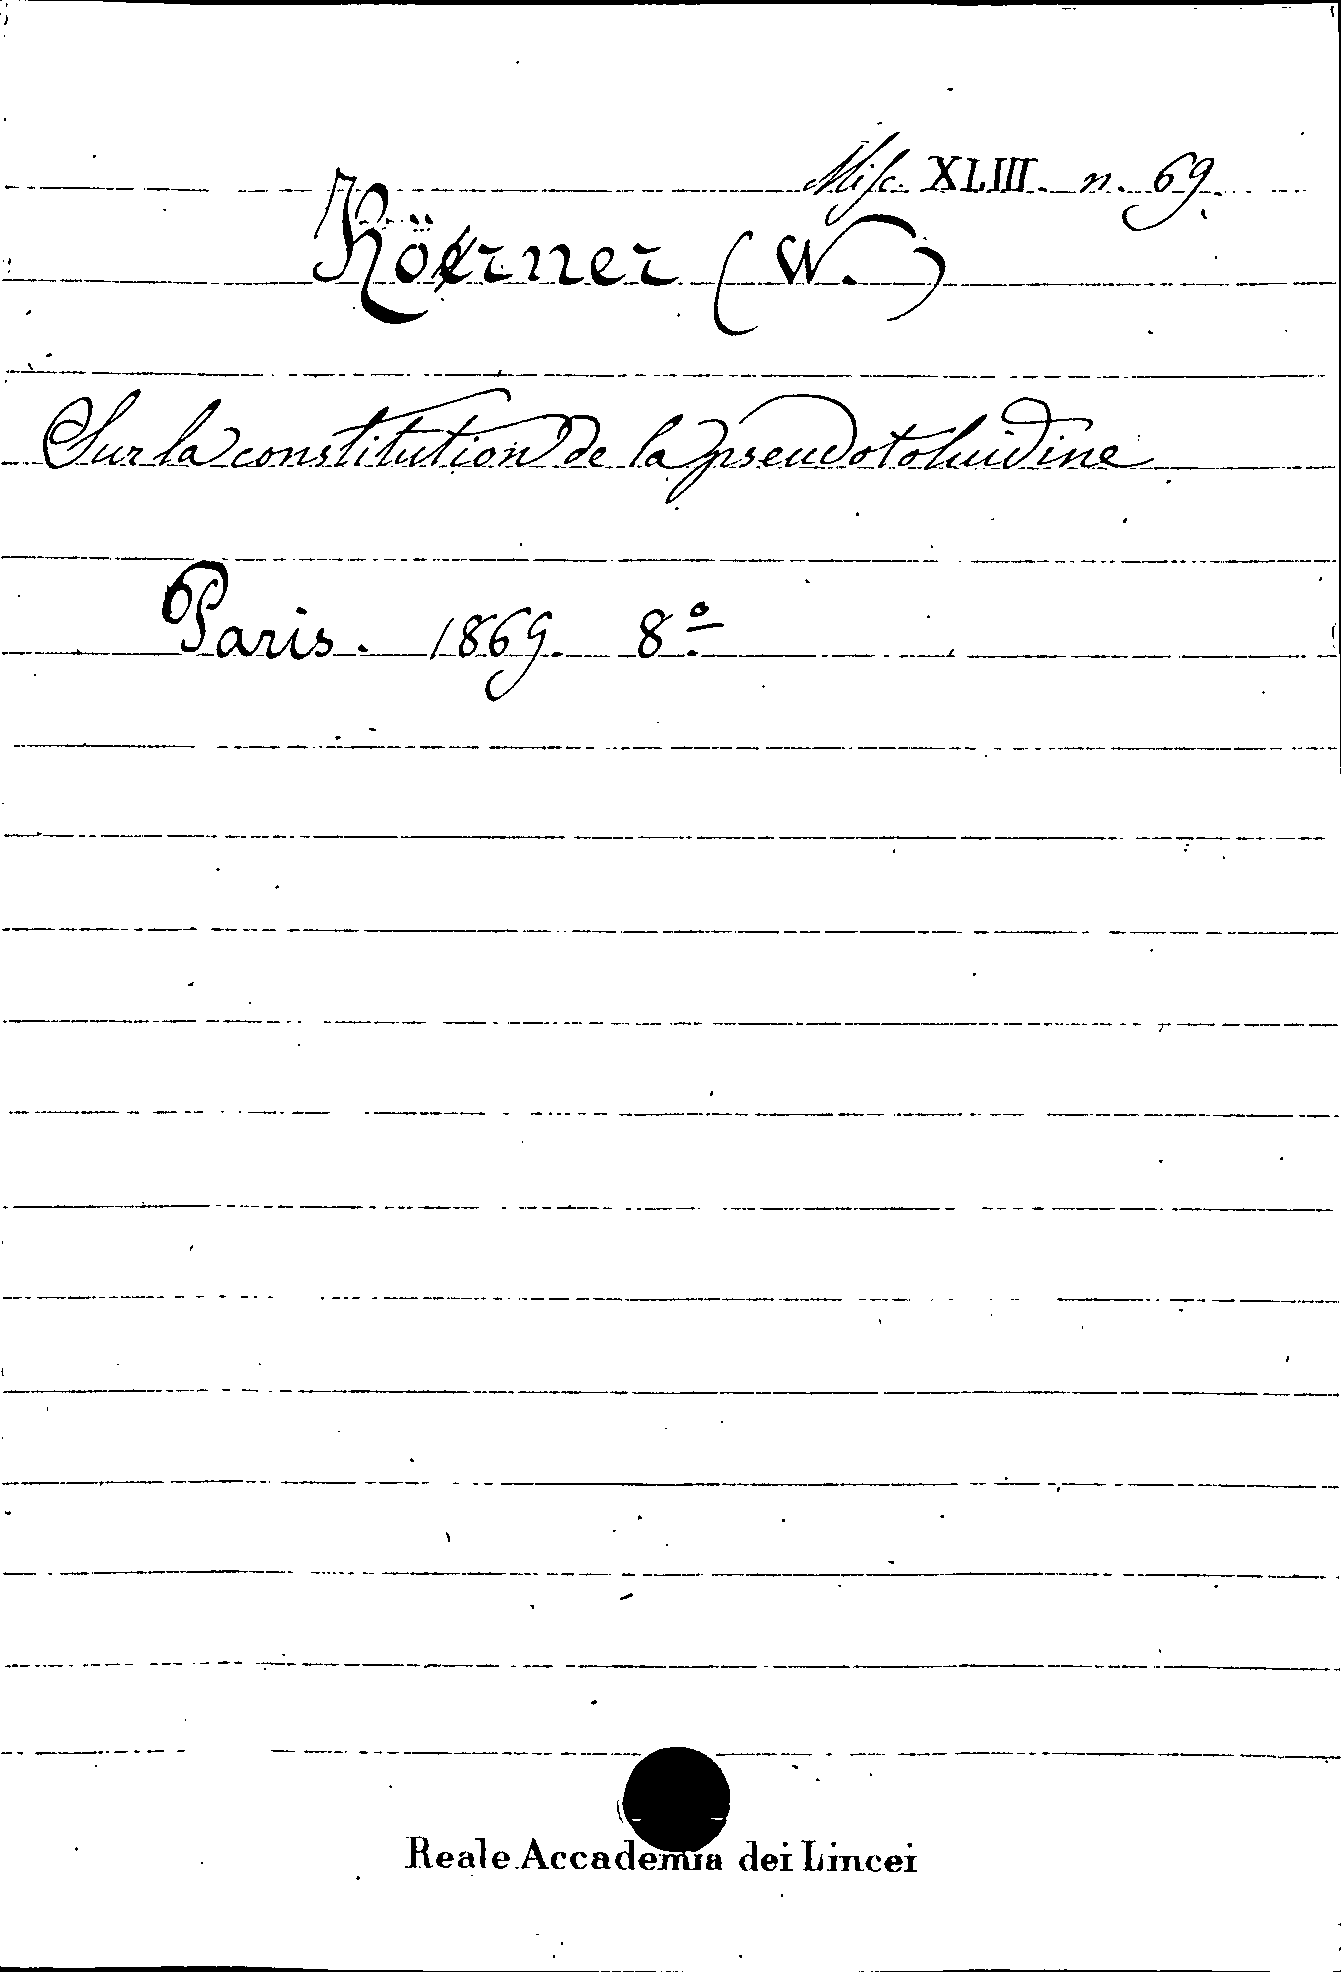 Misc. XLIII. n. 69.
Körner (W.)
Sur la constitution de la pseudotoluidine
Paris. 1869. 8º
Reale Accademia dei Lincei